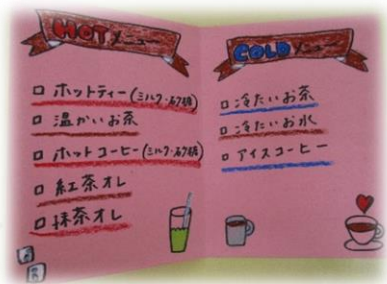 HOTメニュー
□ ホットティー(ミルク・砂糖)
□ 温かいお茶
□ ホットコーヒー(ミルク・砂糖)
□ 紅茶オレ
□ 抹茶オレ
COLDメニュー
□ 冷たいお茶
□ 冷たいお水
□ アイスコーヒー